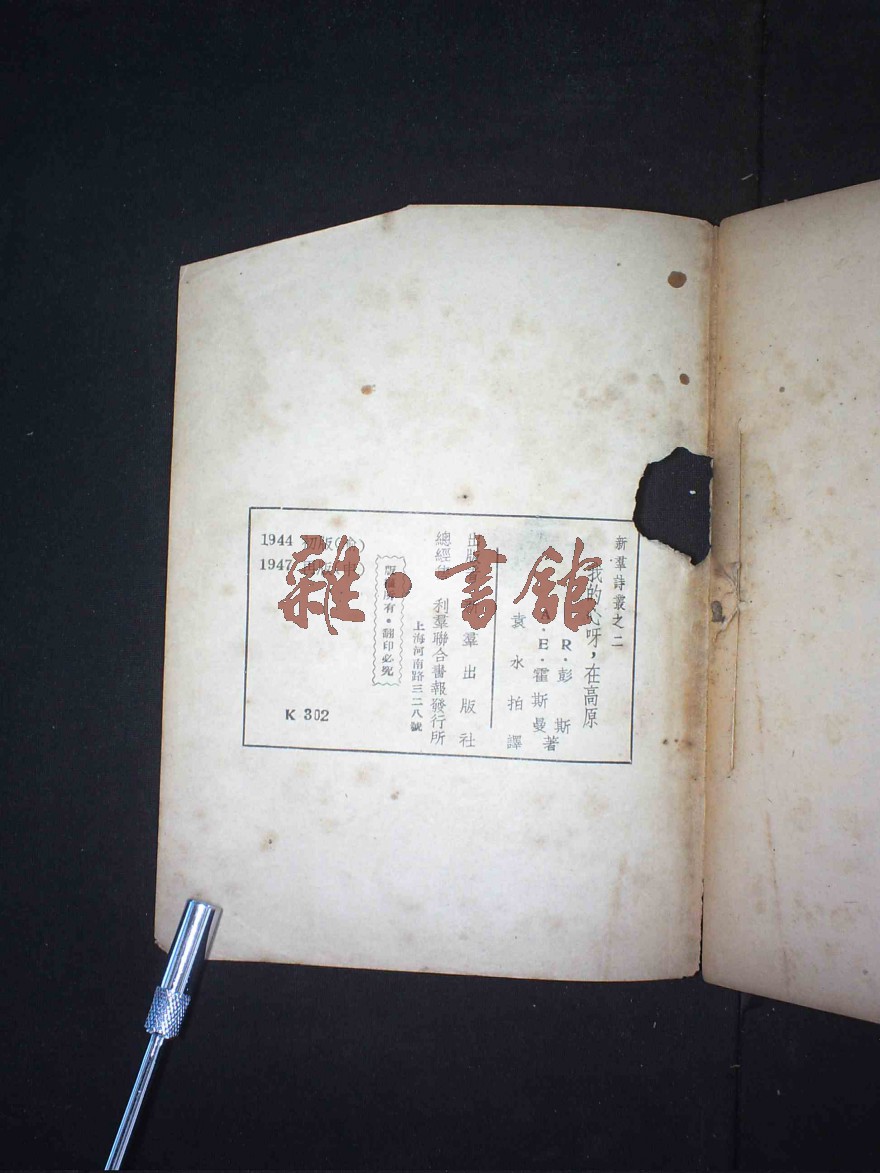 新羣詩叢之二
我的心呀，在高原
R·彭斯
A·E·霍斯曼
著
袁水拍譯
出版 羣出版社
總經 利羣聯合書報發行所
上海河南路三二八號
版權所有·翻印必究
1944 初版(渝)
1947 再版(申)
K 302
雜·書館